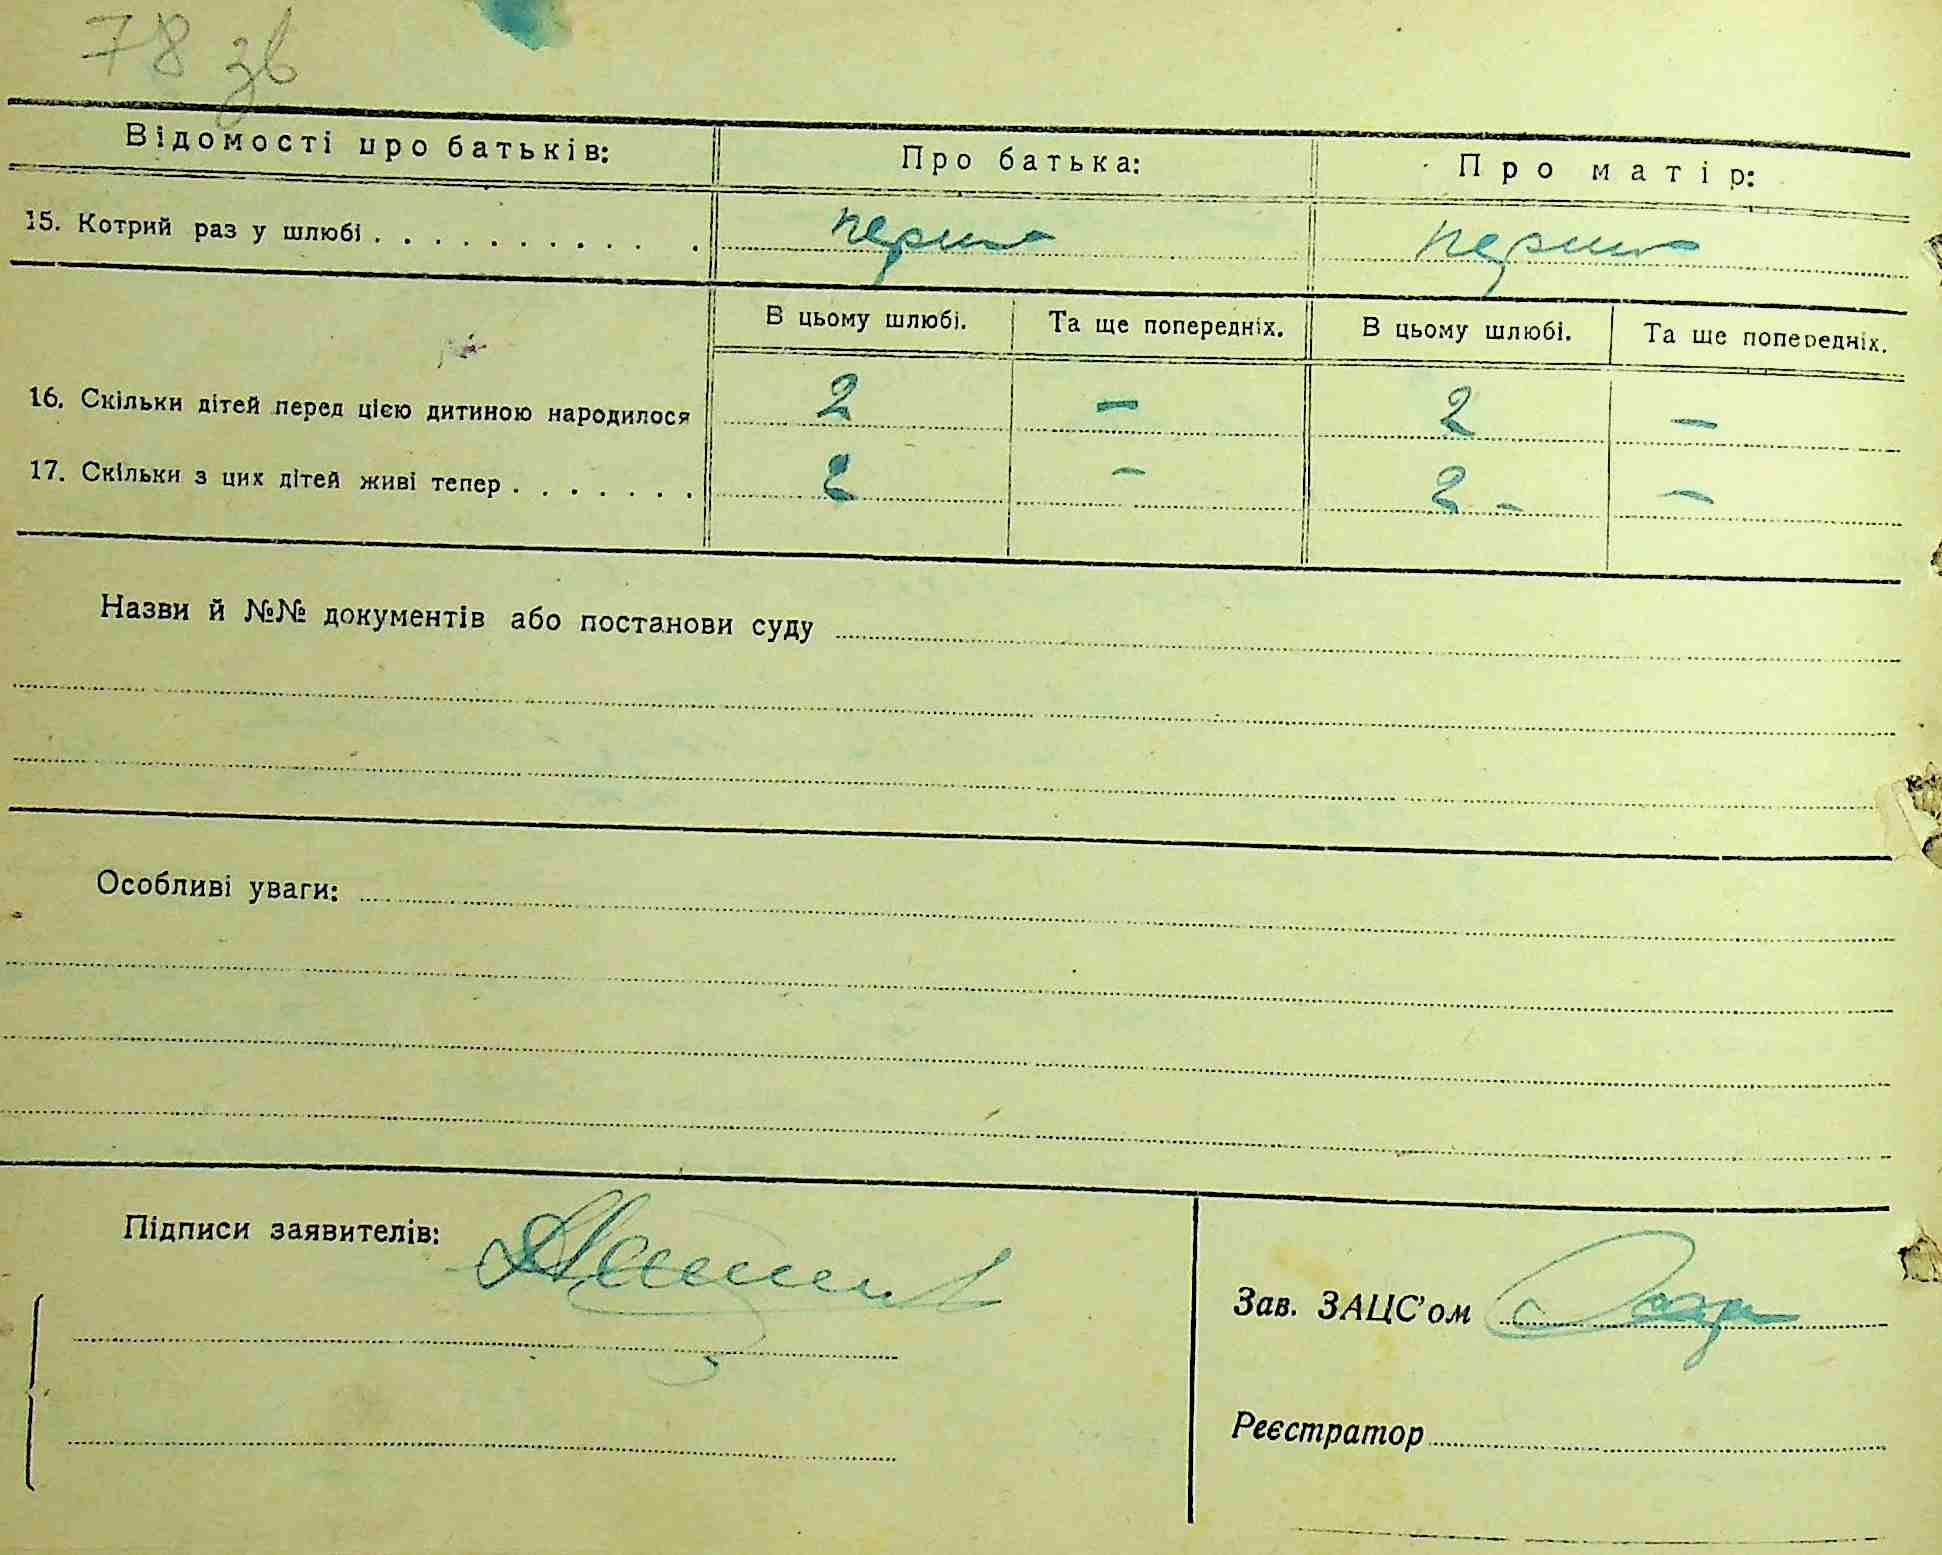 78 зв
Відомості про батьків: Про батька: Про матір:
15. Котрий раз у шлюбі . . . . . . . . . . . . перший перший
В цьому шлюбі. Та ще попередніх. В цьому шлюбі. Та ще попередніх.
16. Скільки дітей перед цією дитиною народилося 2 – 2 –
17. Скільки з цих дітей живі тепер . . . . . . . 2 – 2 - –
Назви й №№ документів або постанови суду
Особливі уваги:
Підписи заявителів:
Зав. ЗАЦС’ом
Реєстратор